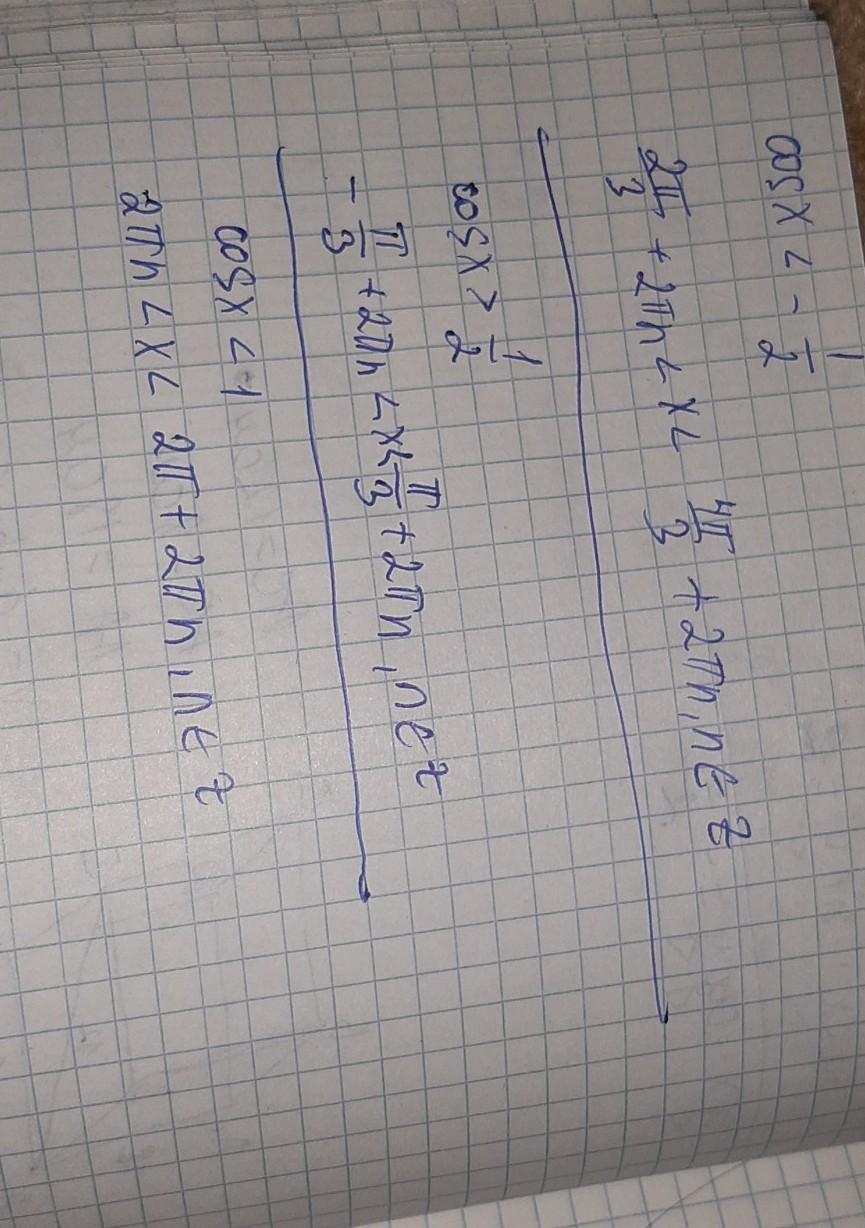 cosx < - 1/2
2π/3 + 2πn < x < 4π/3 + 2πn, n ∈ z
cosx > 1/2
- π/3 + 2πn < x < π/3 + 2πn, n ∈ z
cosx < 1
2πn < x < 2π + 2πn, n ∈ z